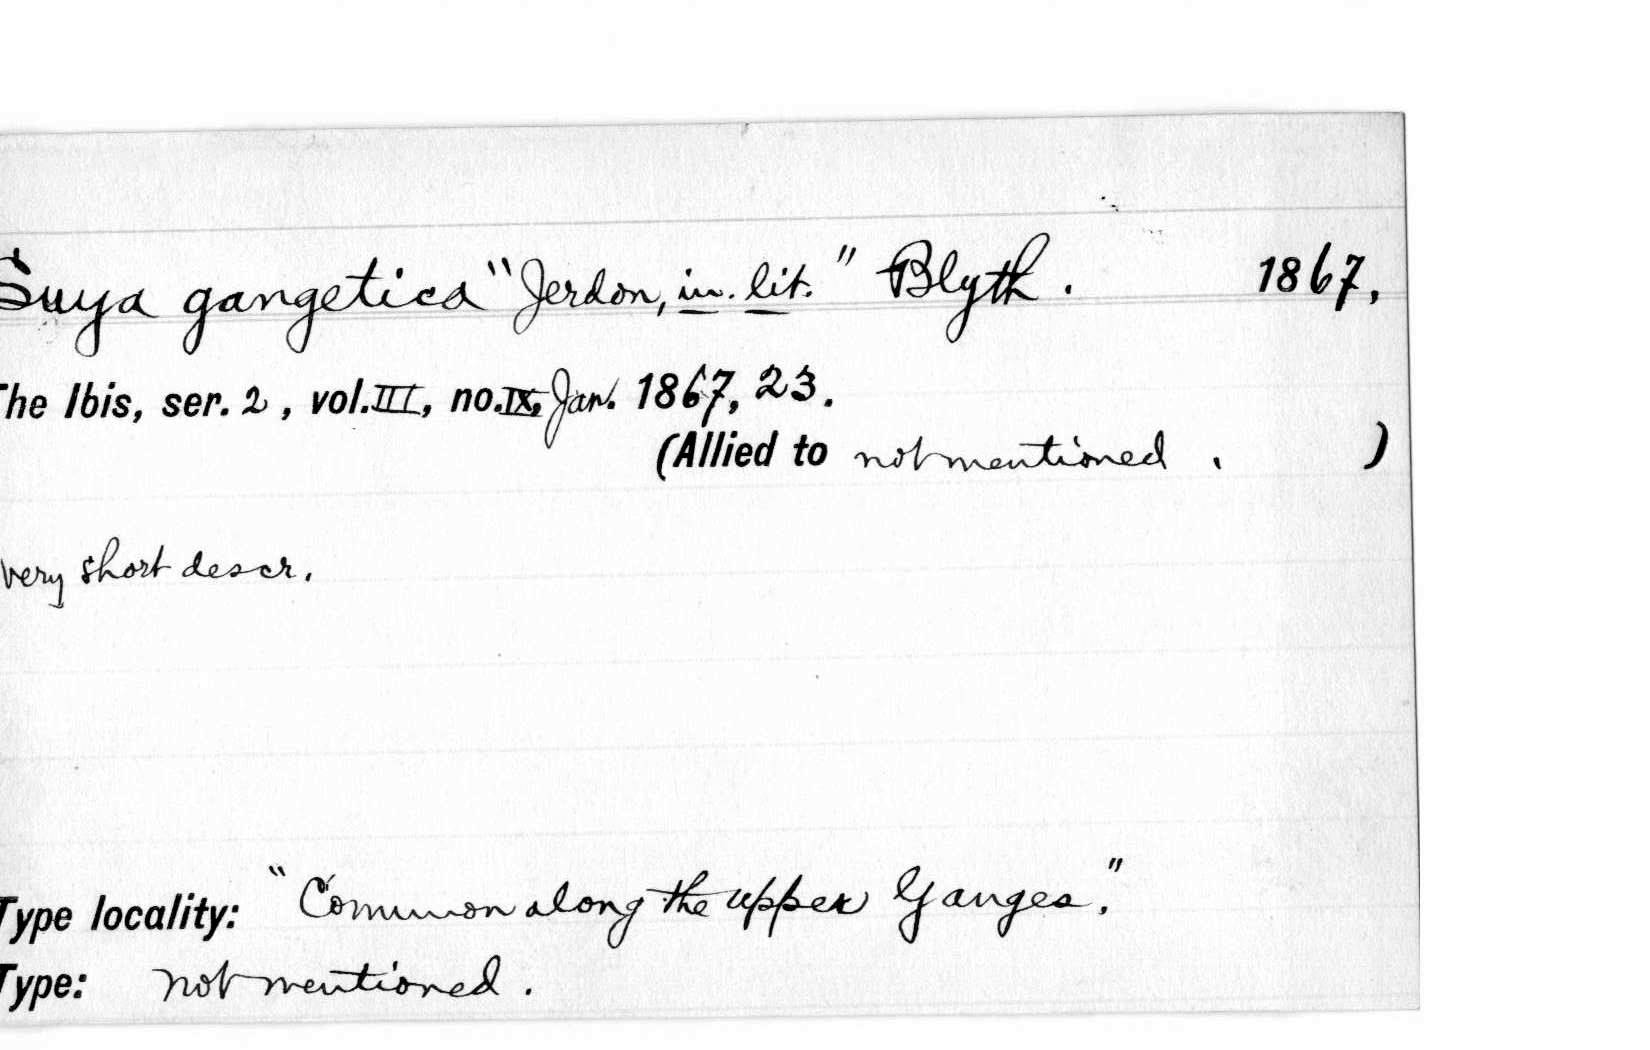 Suya gangetica "Jerdon, in. lit." Blyth. 1867,
The Ibis, ser. 2, vol. III, no. IX, Jan. 1867, 23.
(Allied to not mentioned . )
Very short descr.
Type locality: "Common along the upper Ganges."
Type: not mentioned.